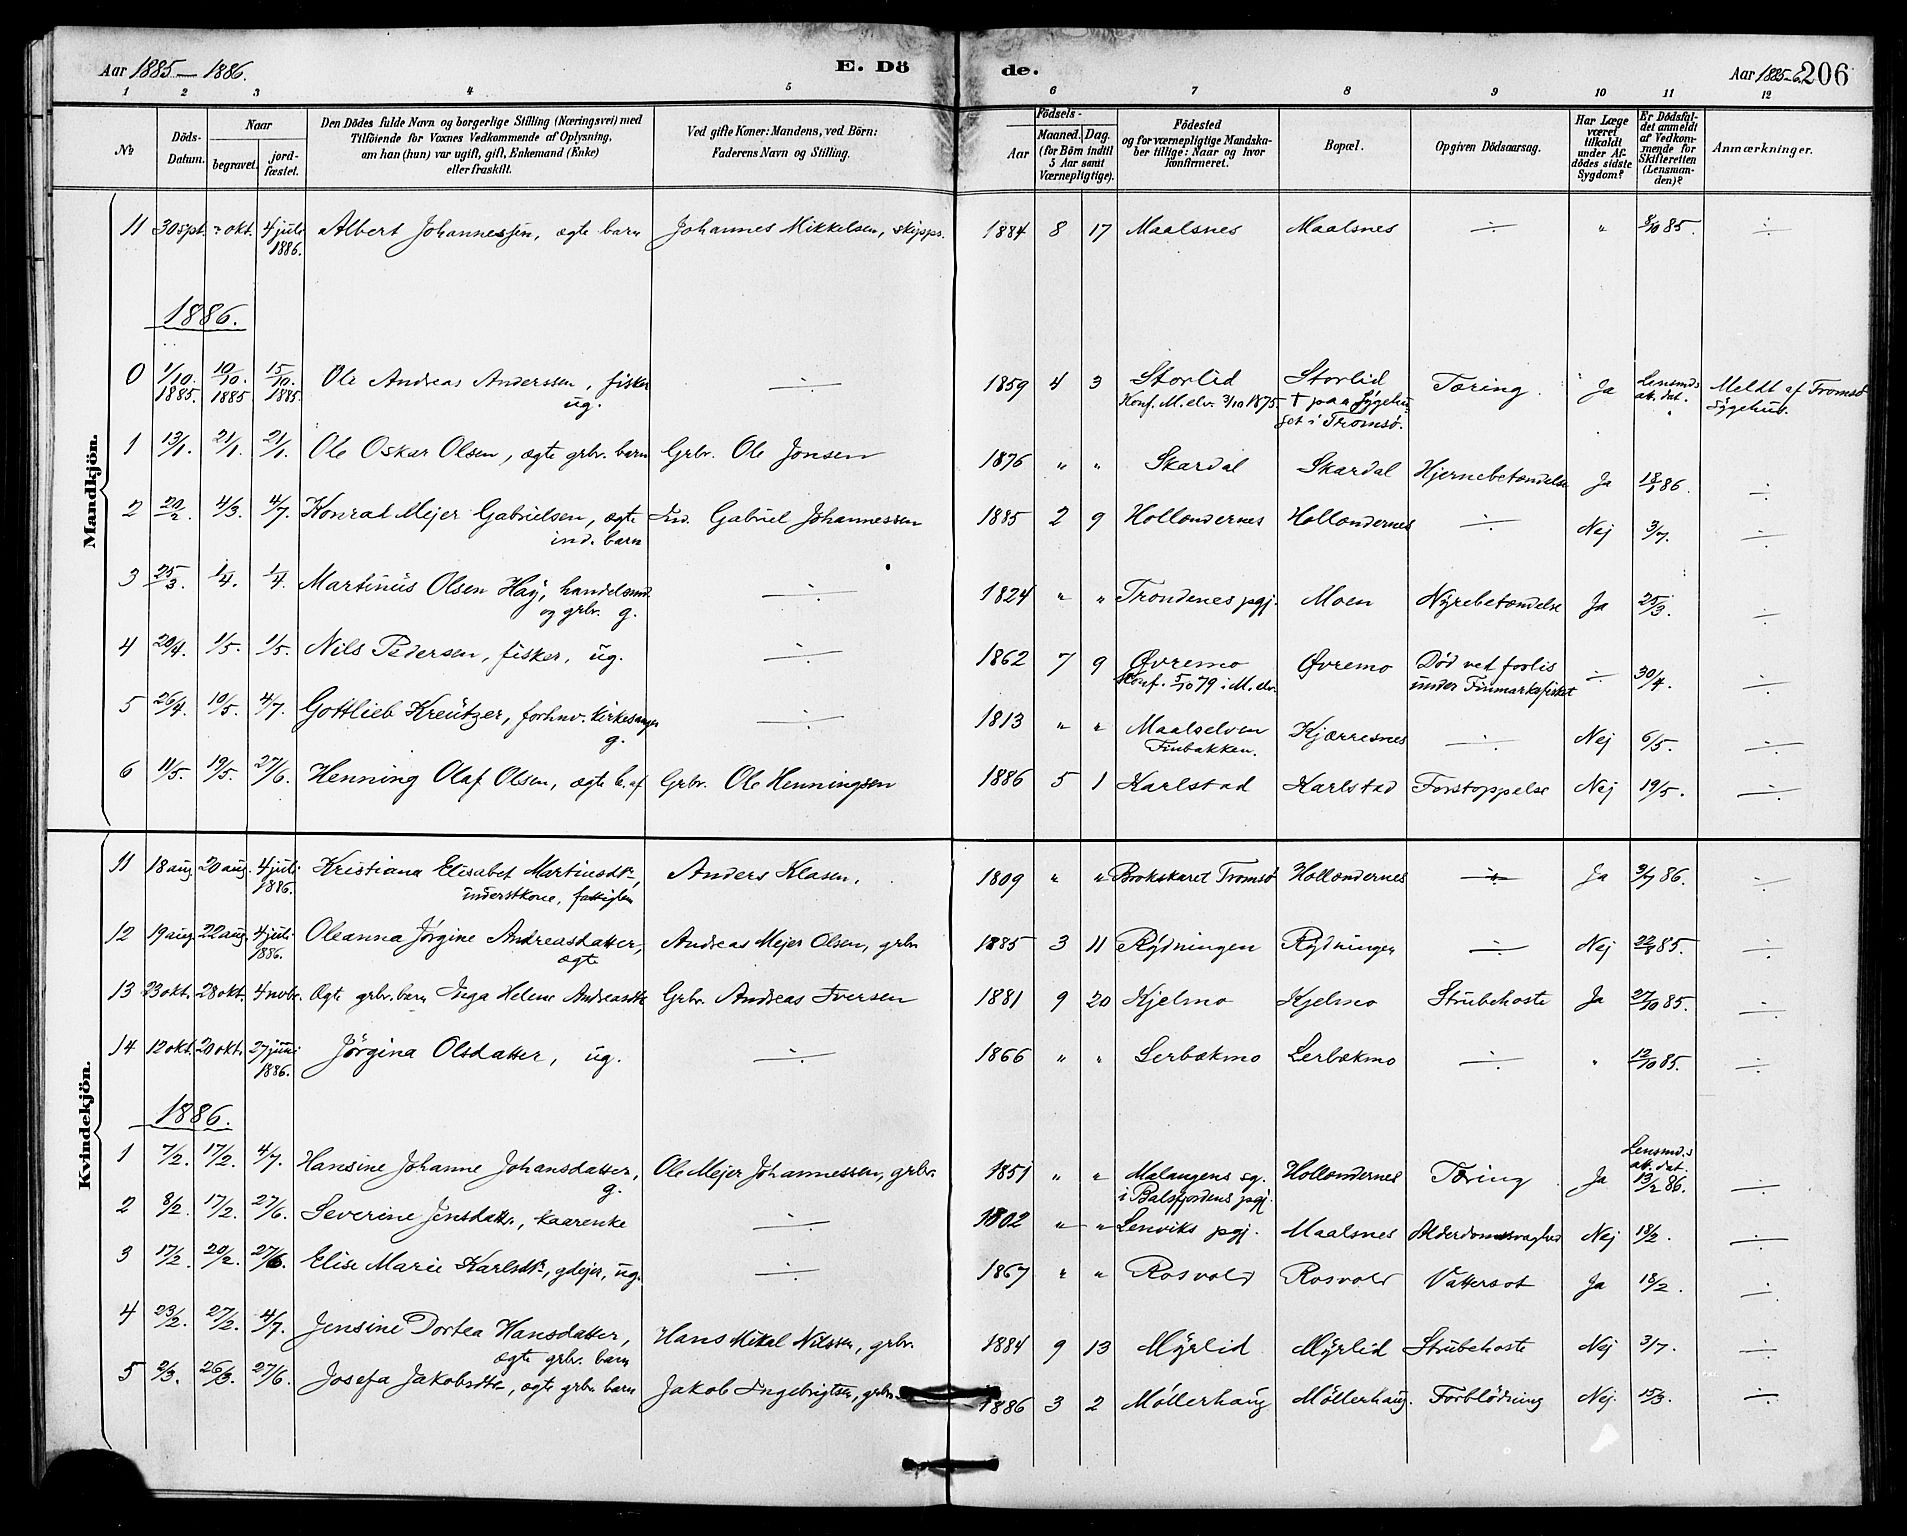 Aar 1885–1886.
E. Dö
de.
Aar 1885-6.
206
1 2 3 4 5 6 7 8 9 10 11 12
№
Döds-Datum.
Naar
begravet.
jord-fæstet.
Den Dödes fulde Navn og borgerlige Stilling (Næringsvei) med
Tilföiende for Voxnes Vedkommende af Oplysning,
om han (hun) var ugift, gift, Enkemand (Enke)
eller fraskilt.
Ved gifte Koner: Mandens, ved Börn:
Faderens Navn og Stilling.
Födsels-
Aar
Maaned. Dag.
(for Börn indtil
5 Aar samt
Værnepligtige).
Födested
og for værnepligtige Mandska-
ber tillige: Naar og hvor
konfirmeret.
Bopæl.
Opgiven Dödsaarsag.
Har Læge
været
tilkaldt
under Af-
dödes sidste
Sygdom?
Er Dödsfal-
det anmeldt
af Vedkom-
mende for
Skifteretten
(Lensman-
den)?
Anmærkninger.
Mandkjön.
11 30 spt. 2 okt. 4 juli 1886. Albert Johannessen, ægte barn Johannes Mikkelsen, skipper. 1884 8 17 Maalsnes Maalsnes ÷ " 8/10 85. ÷
1886.
0 1/10. 1885. 10/10. 1885 15/10. 1885. Ole Andreas Anderssen, fisker ug. ÷ 1859 4 3 Storlid Storlid Tæring. Ja Lensmds. att. dat. Meldt af Tromsö
Konf. M.elv. 3/10 1875. † paa Sygehu- " Sygehus.
set i Tromsö.
1 13/1. 21/1. 21/1. Ole Oskar Olsen, ægte grbr. barn Grbr. Ole Jonsen 1876 " " Skardal Skardal Hjernebetændelse Ja 18/1 86. ÷
2 20/2. 4/3. 4/7. Konrad Mejer Gabrielsen, ægte ind. barn Ind. Gabriel Johannessen 1885 2 9 Hollændernes Hollændernes ÷ Nej 3/7. ÷
3 25/3. 1/4. 1/4. Martinus Olsen Høy, handelsmd. og grbr. g. ÷ 1824 " " Trondenes pgj. Moen Nyrebetændelse Ja 25/3. ÷
4 20/4. 1/5. 1/5. Nils Pedersen, fisker, ug. ÷ 1862 7 9 Øvremo Øvremo Død ved forlis ÷ 30/4. ÷
Konf. 5/10 79 i M.elv. under Finmarksfisket
5 26/4. 10/5. 4/7. Gottlieb Kreutzer, forhnv. kirkesanger g. ÷ 1813 " " Maalselven Finbakken. Kjærresnes ÷ Nej 6/5. ÷
6 11/5. 19/5. 27/6. Henning Olaf Olsen, ægte b. af Grbr. Ole Henningsen 1886 5 1 Karlstad Karlstad Forstoppelse Nej 19/5. ÷
Kvindekjön.
11 18 aug. 20 aug. 4 juli 1886. Kristiana Elisabet Martinsdtr., understkone, fattiglem Anders Klasen. 1809 " " Brokskaret Tromsö Hollændernes ÷ Ja 3/7 86. ÷
12 19 aug. 22 aug. 4 juli 1886. Oleanna Jørgine Andreasdatter, ægte Andreas Mejer Olsen, grbr 1885 3 11 Rydningen Rydningen ÷ Nej 22/8 85. ÷
13 23 okt. 28 okt. 4 novbr. Ægte grbr. barn Inga Helene Andreasdtr Grbr. Andreas Iversen 1881 9 20 Kjelmo Kjelmo Strubehoste Ja 27/10 85. ÷
14 12 okt. 20 okt. 27 juni 1886. Jørgina Olsdatter, ug. ÷ 1866 " " Lerbækmo Lerbækmo ÷ " 12/10 85. ÷
1886.
1 7/2. 17/2. 4/7. Hansine Johanne Johansdatter, g. Ole Mejer Johannessen, grbr. 1851 " " Malangens sg. i Balsfjordens pgj. Hollændernes Tæring Ja Lensmds. att. dat. 13/2 86. ÷
2 8/2. 17/2. 27/6. Severine Jensdattr., kaarenke ÷ 1802 " " Lenviks pgj. Maalsnes Alderdomssvaghed Nej 18/2. ÷
3 17/2. 20/2. 27/6. Elise Marie Karlsdtr., gdejer, ug. ÷ 1867 " " Rosvold Rosvold Vattersot Ja 18/2. ÷
4 23/2. 27/2. 4/7. Jensine Dortea Hansdatter, ægte grbr. barn Hans Mikal Nilssen, grbr. 1884 9 13 Myrlid Myrlid Strubehoste Nej 3/7. ÷
5 2/3. 26/3. 27/6. Josefa Jakobsdtr., ægte grbr barn Jakob Ingebrigtsen, grbr. 1886 3 2 Möllerhaug Möllerhaug. Forblödning Nej. 15/3. ÷